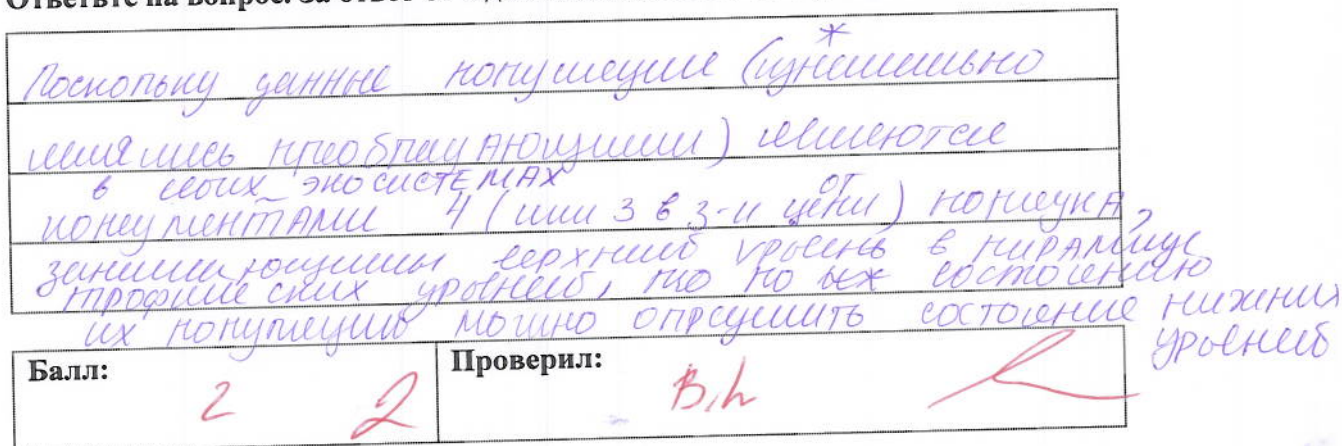 Ответьте на вопрос. За ответ от
*
Поскольку данные популяции (изначально
являлись преобладающими) являются
в своих экосистемах
консументами 4 (или 3 в 3-й цепи) порядка,
занимающими верхний уровень в пирамиде
трофических уровней, то по состоянию
их популяций можно определить состояние нижних
уровней
Балл: 2 2 Проверил: